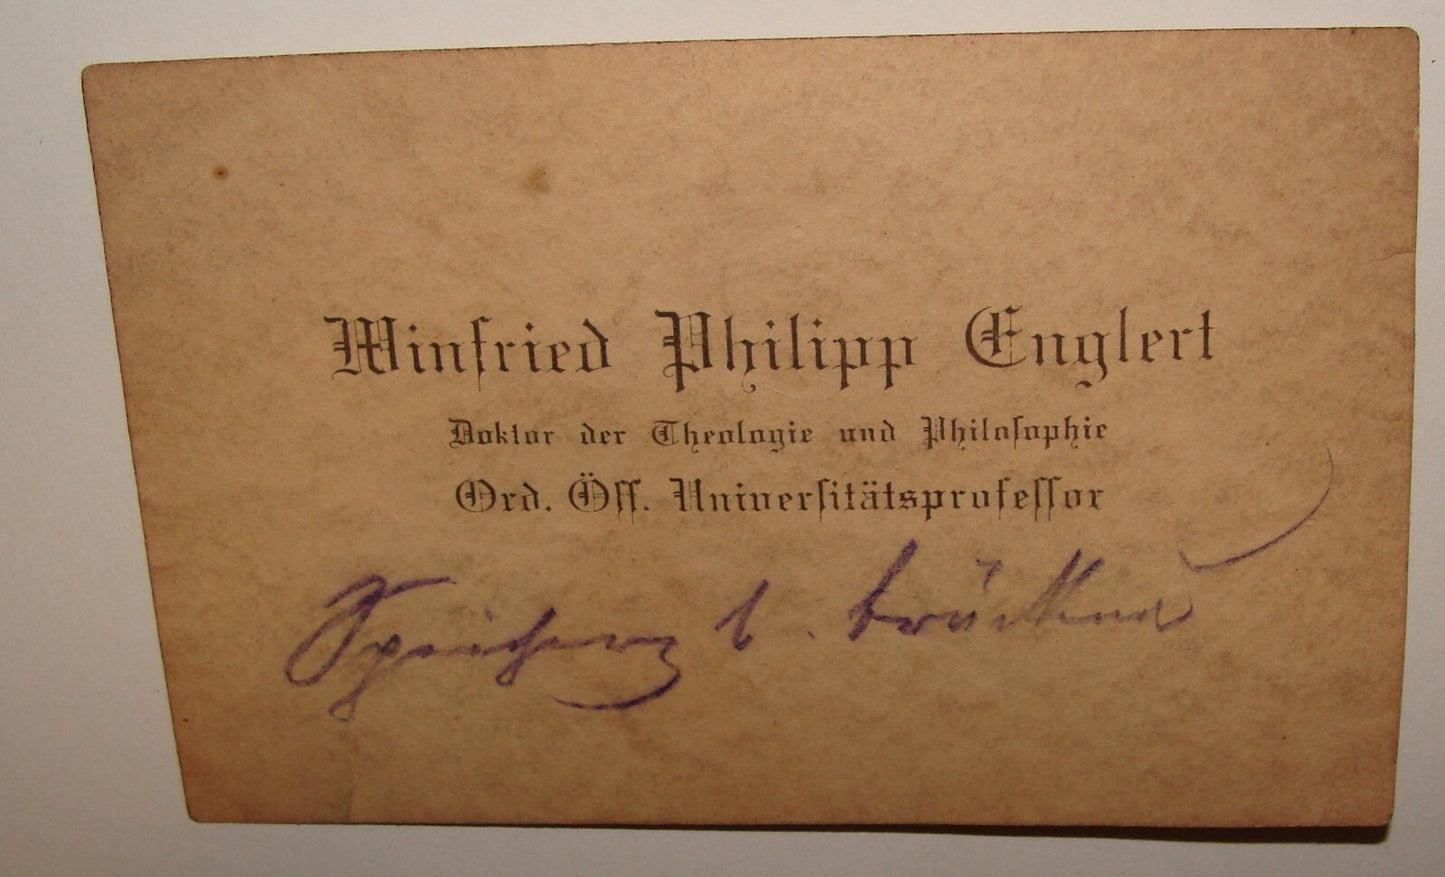 Winfried Philipp Englert
Doktor der Theologie und Philosophie
Ord. Öff. Universitätsprofessor
Speicherz b. Brückenau